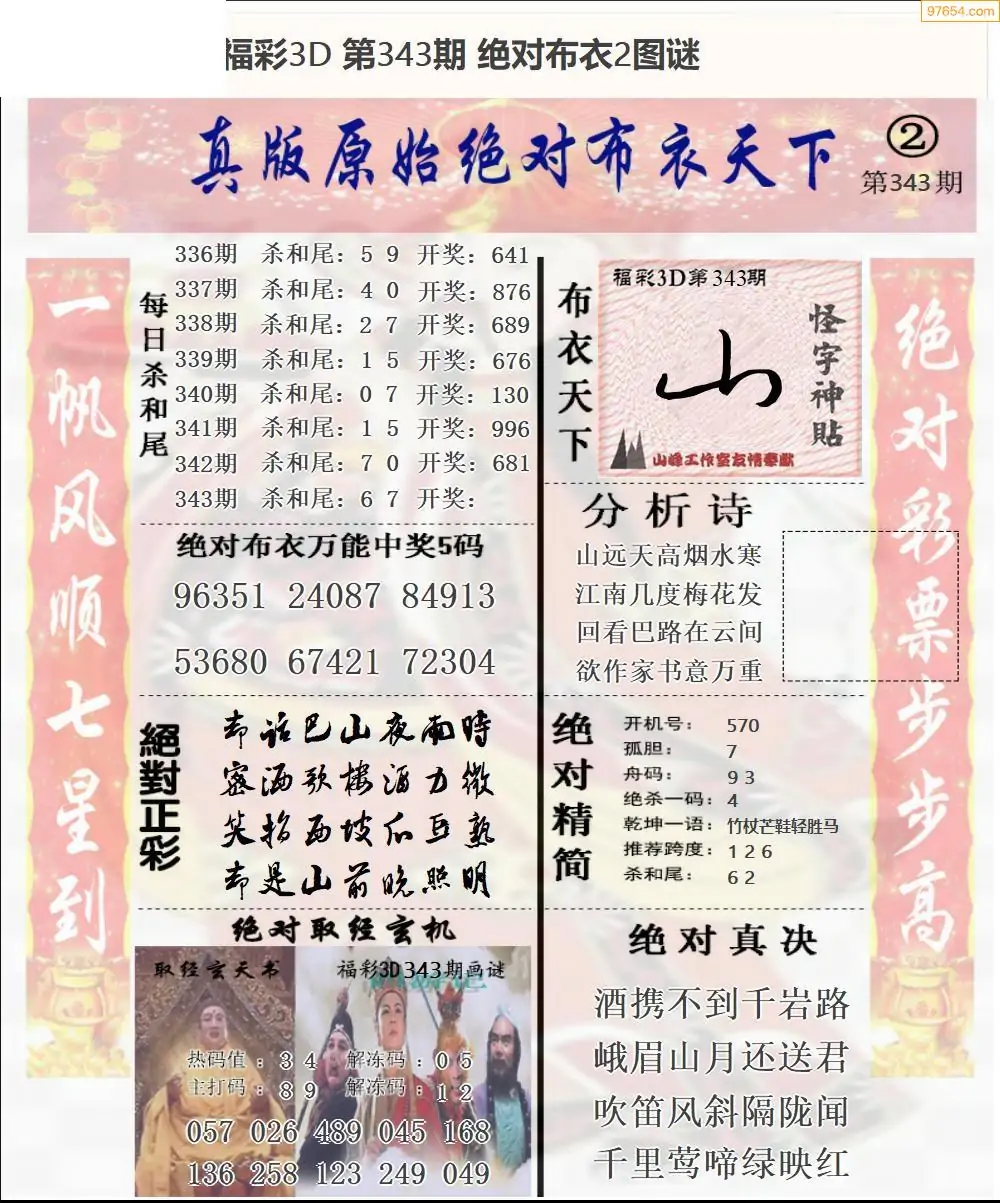 97654.com
福彩3D 第343期 绝对布衣2图谜
真版原始绝对布衣天下
②
第343期
一帆风顺七星到
每日杀和尾
336期 杀和尾：5 9 开奖：641
337期 杀和尾：4 0 开奖：876
338期 杀和尾：2 7 开奖：689
339期 杀和尾：1 5 开奖：676
340期 杀和尾：0 7 开奖：130
341期 杀和尾：1 5 开奖：996
342期 杀和尾：7 0 开奖：681
343期 杀和尾：6 7 开奖：
绝对布衣万能中奖5码
96351 24087 84913
53680 67421 72304
絕對正彩
却话巴山夜雨時
密洒歌樓酒力微
笑指西坡瓜豆熟
却是山前晚照明
绝对取经玄机
取经玄天书
福彩3D343期画谜
热码值：3 4 解冻码：0 5
主打码：8 9 解冻码：1 2
057 026 489 045 168
136 258 123 249 049
布衣天下
福彩3D第343期
山
怪字神貼
山峰工作室友情奉献
分析诗
山远天高烟水寒
江南几度梅花发
回看巴路在云间
欲作家书意万重
绝对精简
开机号：570
孤胆：7
舟码：9 3
绝杀一码：4
乾坤一语：竹杖芒鞋轻胜马
推荐跨度：1 2 6
杀和尾：6 2
绝对真决
酒携不到千岩路
峨眉山月还送君
吹笛风斜隔陇闻
千里莺啼绿映红
绝对彩票步步高